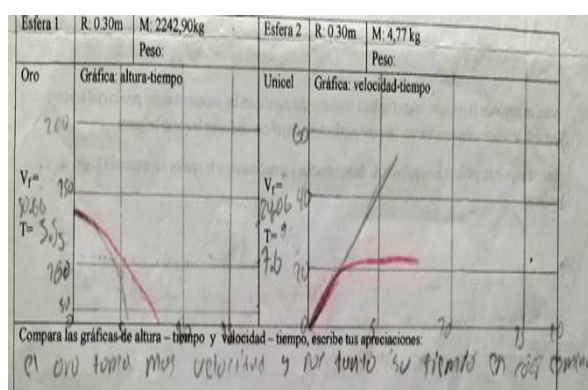 Esfera 1 R: 0.30m M: 2242,90kg Esfera 2 R: 0.30m M: 4,77 kg
Peso: Peso:
Oro Gráfica: altura-tiempo Unicel Gráfica: velocidad-tiempo
200 60
Vf= 150 Vf= 40
24.06
T= 5.5s T=
100 7.6 20
50
5 10
Compara las gráficas de altura – tiempo y velocidad – tiempo, escribe tus apreciaciones:
el oro toma mas velocidad y por tanto su tiempo en